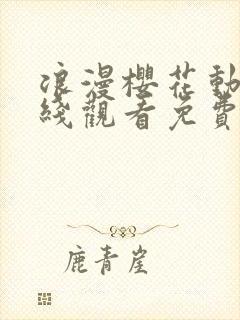 浪漫櫻花動
綫觀看免費
鹿青崖